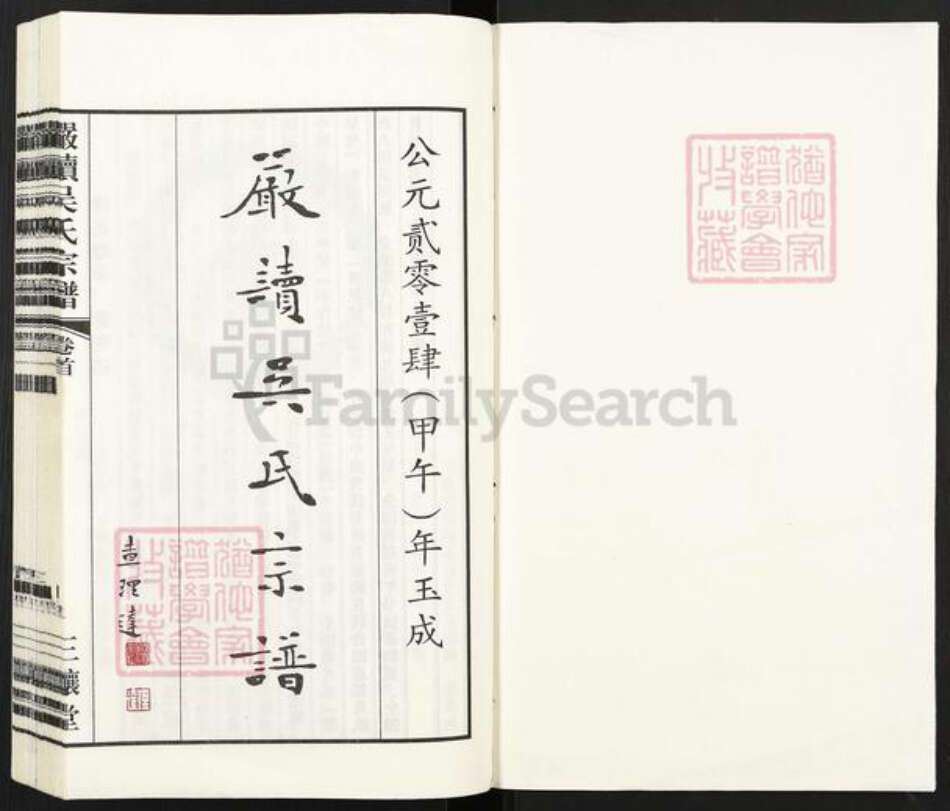 公元贰零壹肆(甲午)年玉成
嚴讀吳氏宗譜
查理達
嚴讀吳氏宗譜
卷首
三讓堂
猶他家
譜學會
收藏
猶他家
譜學會
收藏
FamilySearch